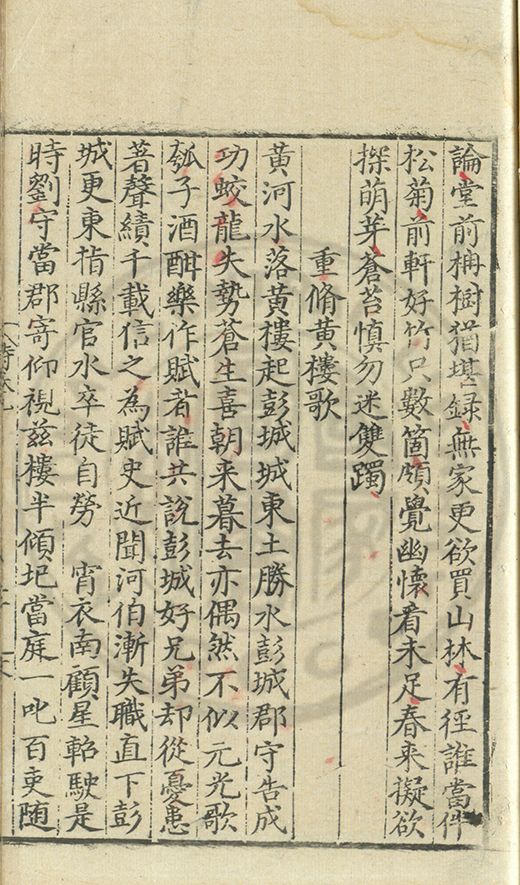 論堂前枏樹猶堪録無家更欲買山林有徑誰當伴
松菊前軒好竹只數箇頗覺幽懷看未足春来擬欲
探萌芽蒼苔慎勿迷雙躅
重脩黄樓歌
黄河水落黄樓起彭城城東土勝水彭城郡守告成
功蛟龍失勢蒼生喜朝来暮去亦偶然不似元光歌
瓠子酒酣樂作賦者誰共説彭城好兄弟却從憂患
著聲績千載信之為賦史近聞河伯漸失職直下彭
城更東指縣官水卒徒自勞 宵衣南顧星軺駛是
時劉守當郡寄仰視兹樓半傾圯當庭一叱百吏随